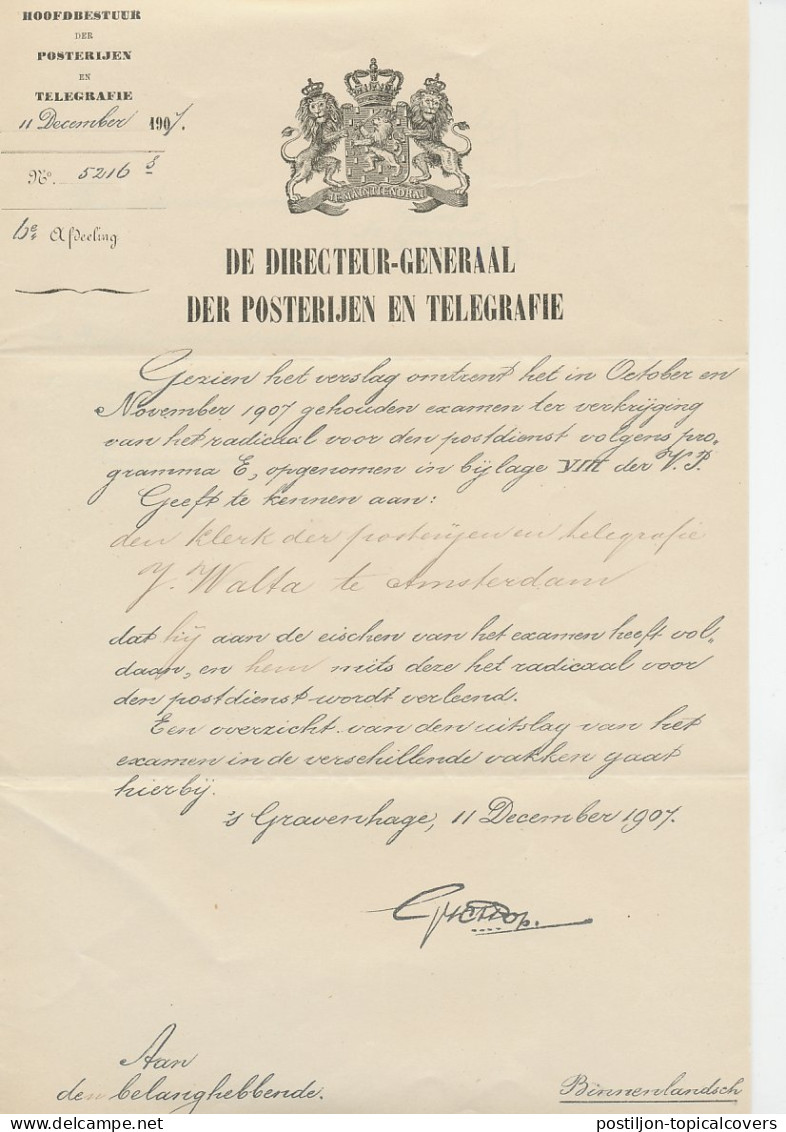 HOOFDBESTUUR
DER
POSTERIJEN
EN
TELEGRAFIE
11 December 1907.
No. 5216
Afdeeling
JE MAINTIENDRAI
DE DIRECTEUR-GENERAAL
DER POSTERIJEN EN TELEGRAFIE
Gezien het verslag omtrent het in October en
November 1907 gehouden examen ter verkrijging
van het radicaal voor den postdienst volgens pro-
gramma E, opgenomen in bijlage VIII der V.P.
Geeft te kennen aan:
den klerk der posterijen en telegrafie
J. Walta te Amsterdam
dat hij aan de eischen van het examen heeft vol-
daan, en hem mits deze het radicaal voor
den postdienst wordt verleend.
Een overzicht van den uitslag van het
examen in de verschillende vakken gaat
hierbij.
's Gravenhage, 11 December 1907.
Aan
den belanghebbende.
Binnenlandsch
postiljon-topicalcovers